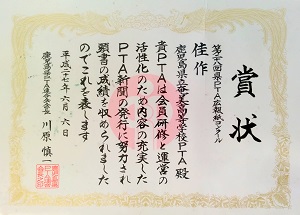 賞状
第六八回県PTA広報紙コンクール
佳作
鹿児島県立奄美高等学校PTA殿
貴PTAは会員研修と運営の
活性化のため内容の充実した
PTA新聞の発行に努力され
顕著の成績を収められました
のでこれを表します
平成二十七年六月六日
鹿児島県PTA連合会会長
川原慎一